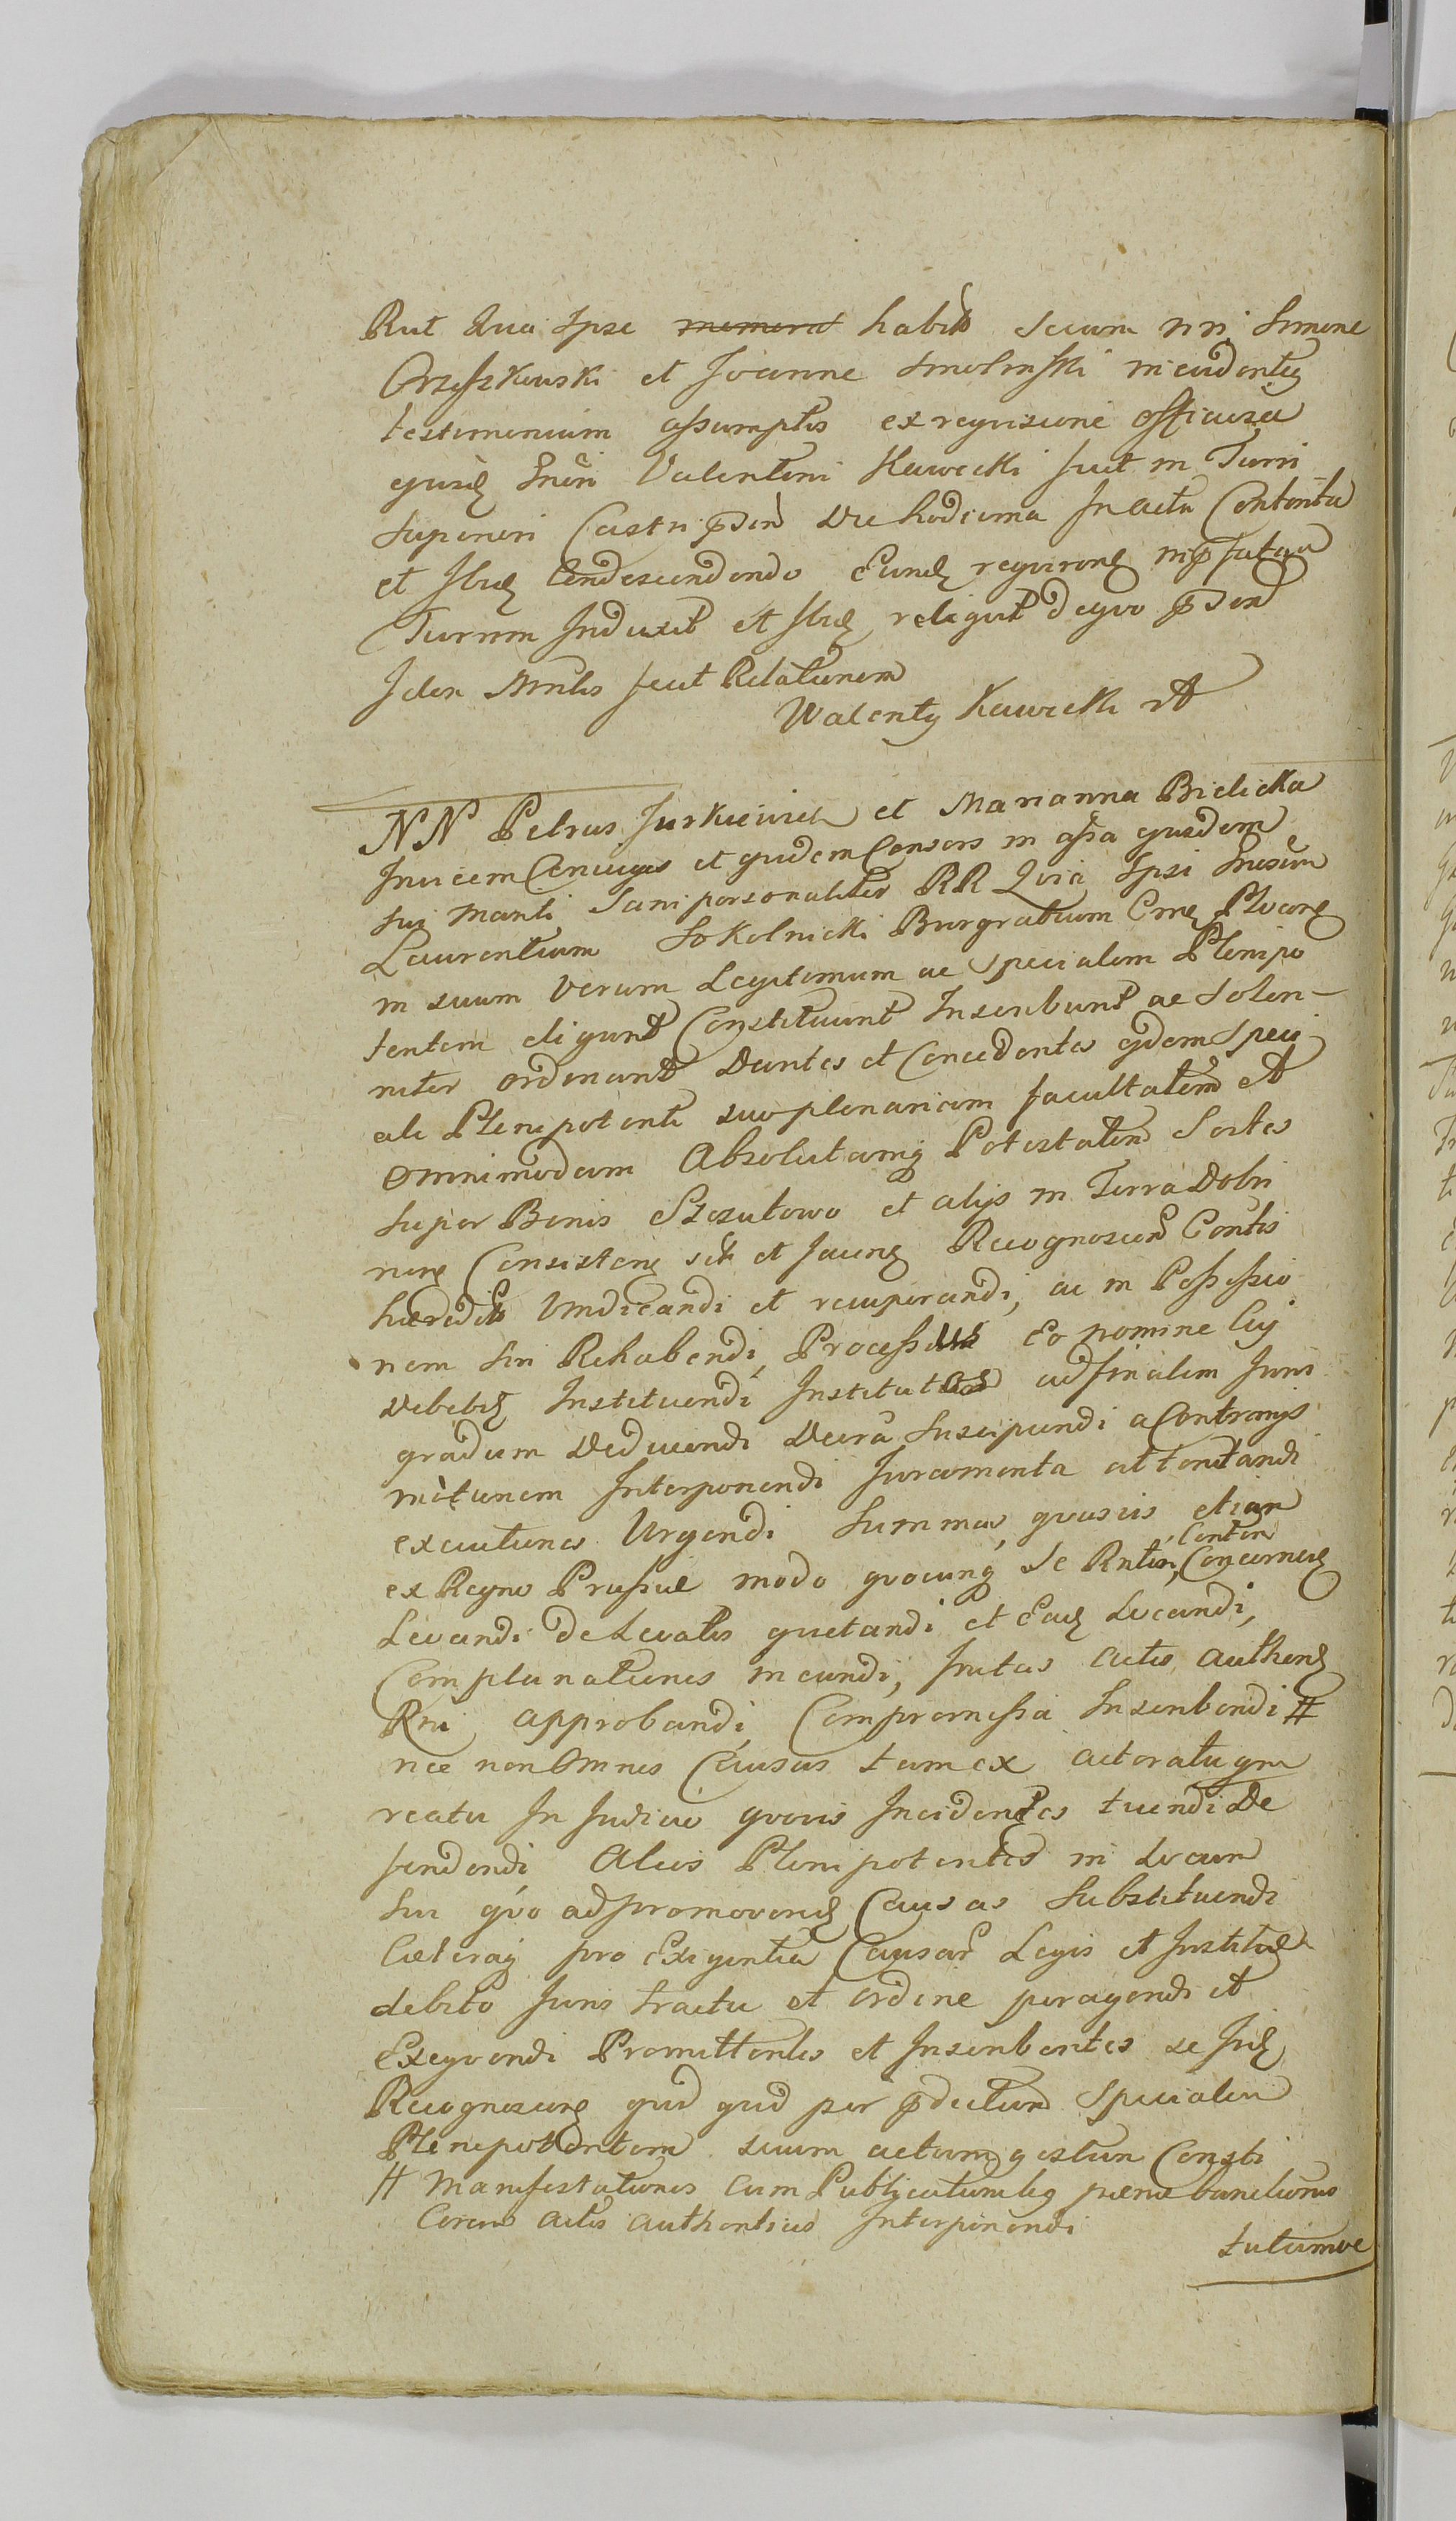 Rut Qua Ipse memorat habitis secum nn Simone
Orzeszkowski et Joanne Smolinski in evidens
testimonium assumptis ex requisicione officiosa
Valentini Kawecki fuit in Turri
superiori Castri die hodierna In actu Contenta
et Ibid Condescendendo Eund requirens
Turrim Induxit et Ibid reliquit de quo
Iden Mnlis fecit Relationem
Walenty Kawecki
NN Petrus Jurkiewicz et Marianna Bielicka
Invicem Conjuges et quidem Consors in assa ejusdem
sui Mariti Sani personaliter RR Quia Ipsi
Laurentium Sokolnicki Burgrabium
in suum verum Legitimum ac specialem Plenipo
tentem eligunt Constituunt Inscribunt ac solen-
niter ordinant Dantes et Concedentes eidem speci
ali Plenipotenti suo plenariam facultatem et
omnimodam Absolutamq Potestatem Sortes
super Bonis Szczutowo et alijs in Terra Dobri
nen Consisten sitt et jacen Recognoscen Contis
haeredit Vindicandi et recuperandi, ac in Possessio
nem sui Rehabendi, Processus Eo nomine Cuj
debebit Instituendi Institutos ad finalem Juris
gradum Deducendi Decreta Suscipiendi a Contrarijs
motionem Interponendi Juramenta attentandi
executiones Urgendi Summas quasvis etiam
Conten
ex Regno Prussiae modo quocunq Se Rntes, Concernen
Levandi de Levatis quietandi et Easd Locandi,
Complanationes ineundi, Initas actis authend
Rni approbandi, Compromissa Inscribendi #
nec non Omnes Causas tam ex actoratu qm
reatu In Judicio quovis Incidentes tuendi De
fendendi, Alios Plenipotentes in Locum
sui quo ad promovend Causas Substituendi
Caeteraq pro Exigentia Causar Legis et Institut
debito Juris tractu et ordine peragendi et
Exequendi Promittentes et Inscribentes se Iid
Recognoscen quid quid per pdictum Specialem
Plenipotentem suum actum gestum Consti
# Manifestationes cum Publicationibq paenae bannitionis
Coram actis authenticis Interponendi
tutumve